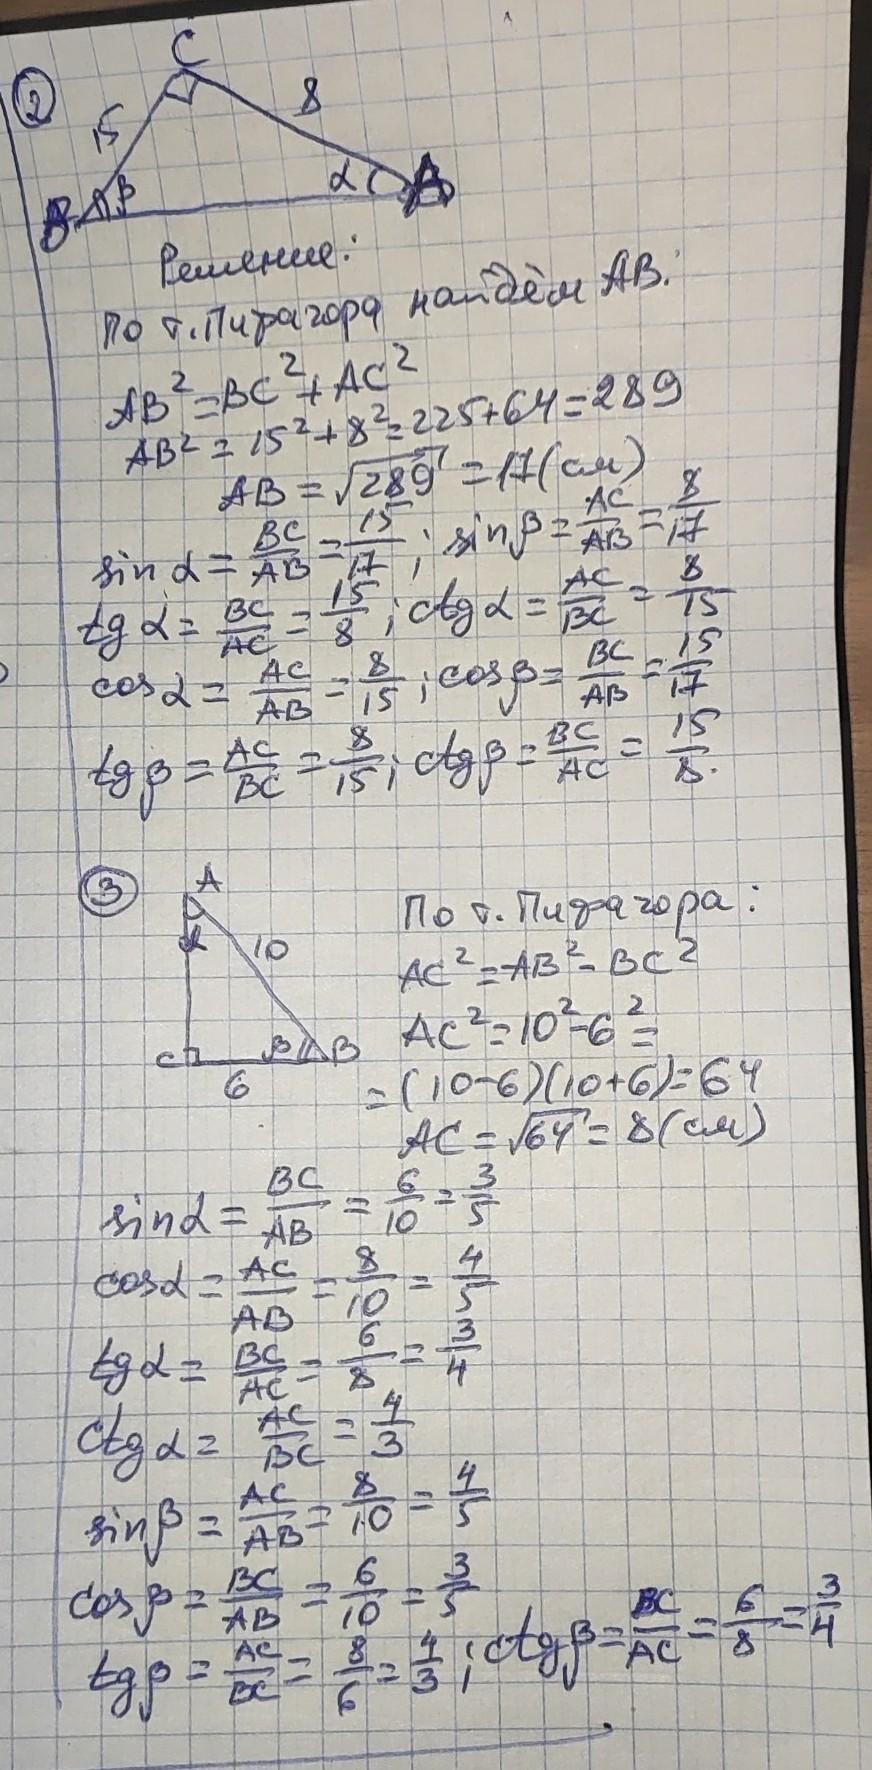 ②
C
15
8
B β
α A
Решение:
По т. Пифагора найдём AB.
AB² = BC² + AC²
AB² = 15² + 8² = 225 + 64 = 289
AB = √289 = 17 (см)
sin α = BC/AB = 15/17 ; sin β = AC/AB = 8/17
tg α = BC/AC = 15/8 ; ctg α = AC/BC = 8/15
cos α = AC/AB = 8/15 ; cos β = BC/AB = 15/17
tg β = AC/BC = 8/15 ; ctg β = BC/AC = 15/8.
③
A
α
10
C β B
6
По т. Пифагора:
AC² = AB² - BC²
AC² = 10² - 6² =
= (10-6)(10+6) = 64
AC = √64 = 8 (см)
sin α = BC/AB = 6/10 = 3/5
cos α = AC/AB = 8/10 = 4/5
tg α = BC/AC = 6/8 = 3/4
ctg α = AC/BC = 4/3
sin β = AC/AB = 8/10 = 4/5
cos β = BC/AB = 6/10 = 3/5
tg β = AC/BC = 8/6 = 4/3 ; ctg β = BC/AC = 6/8 = 3/4